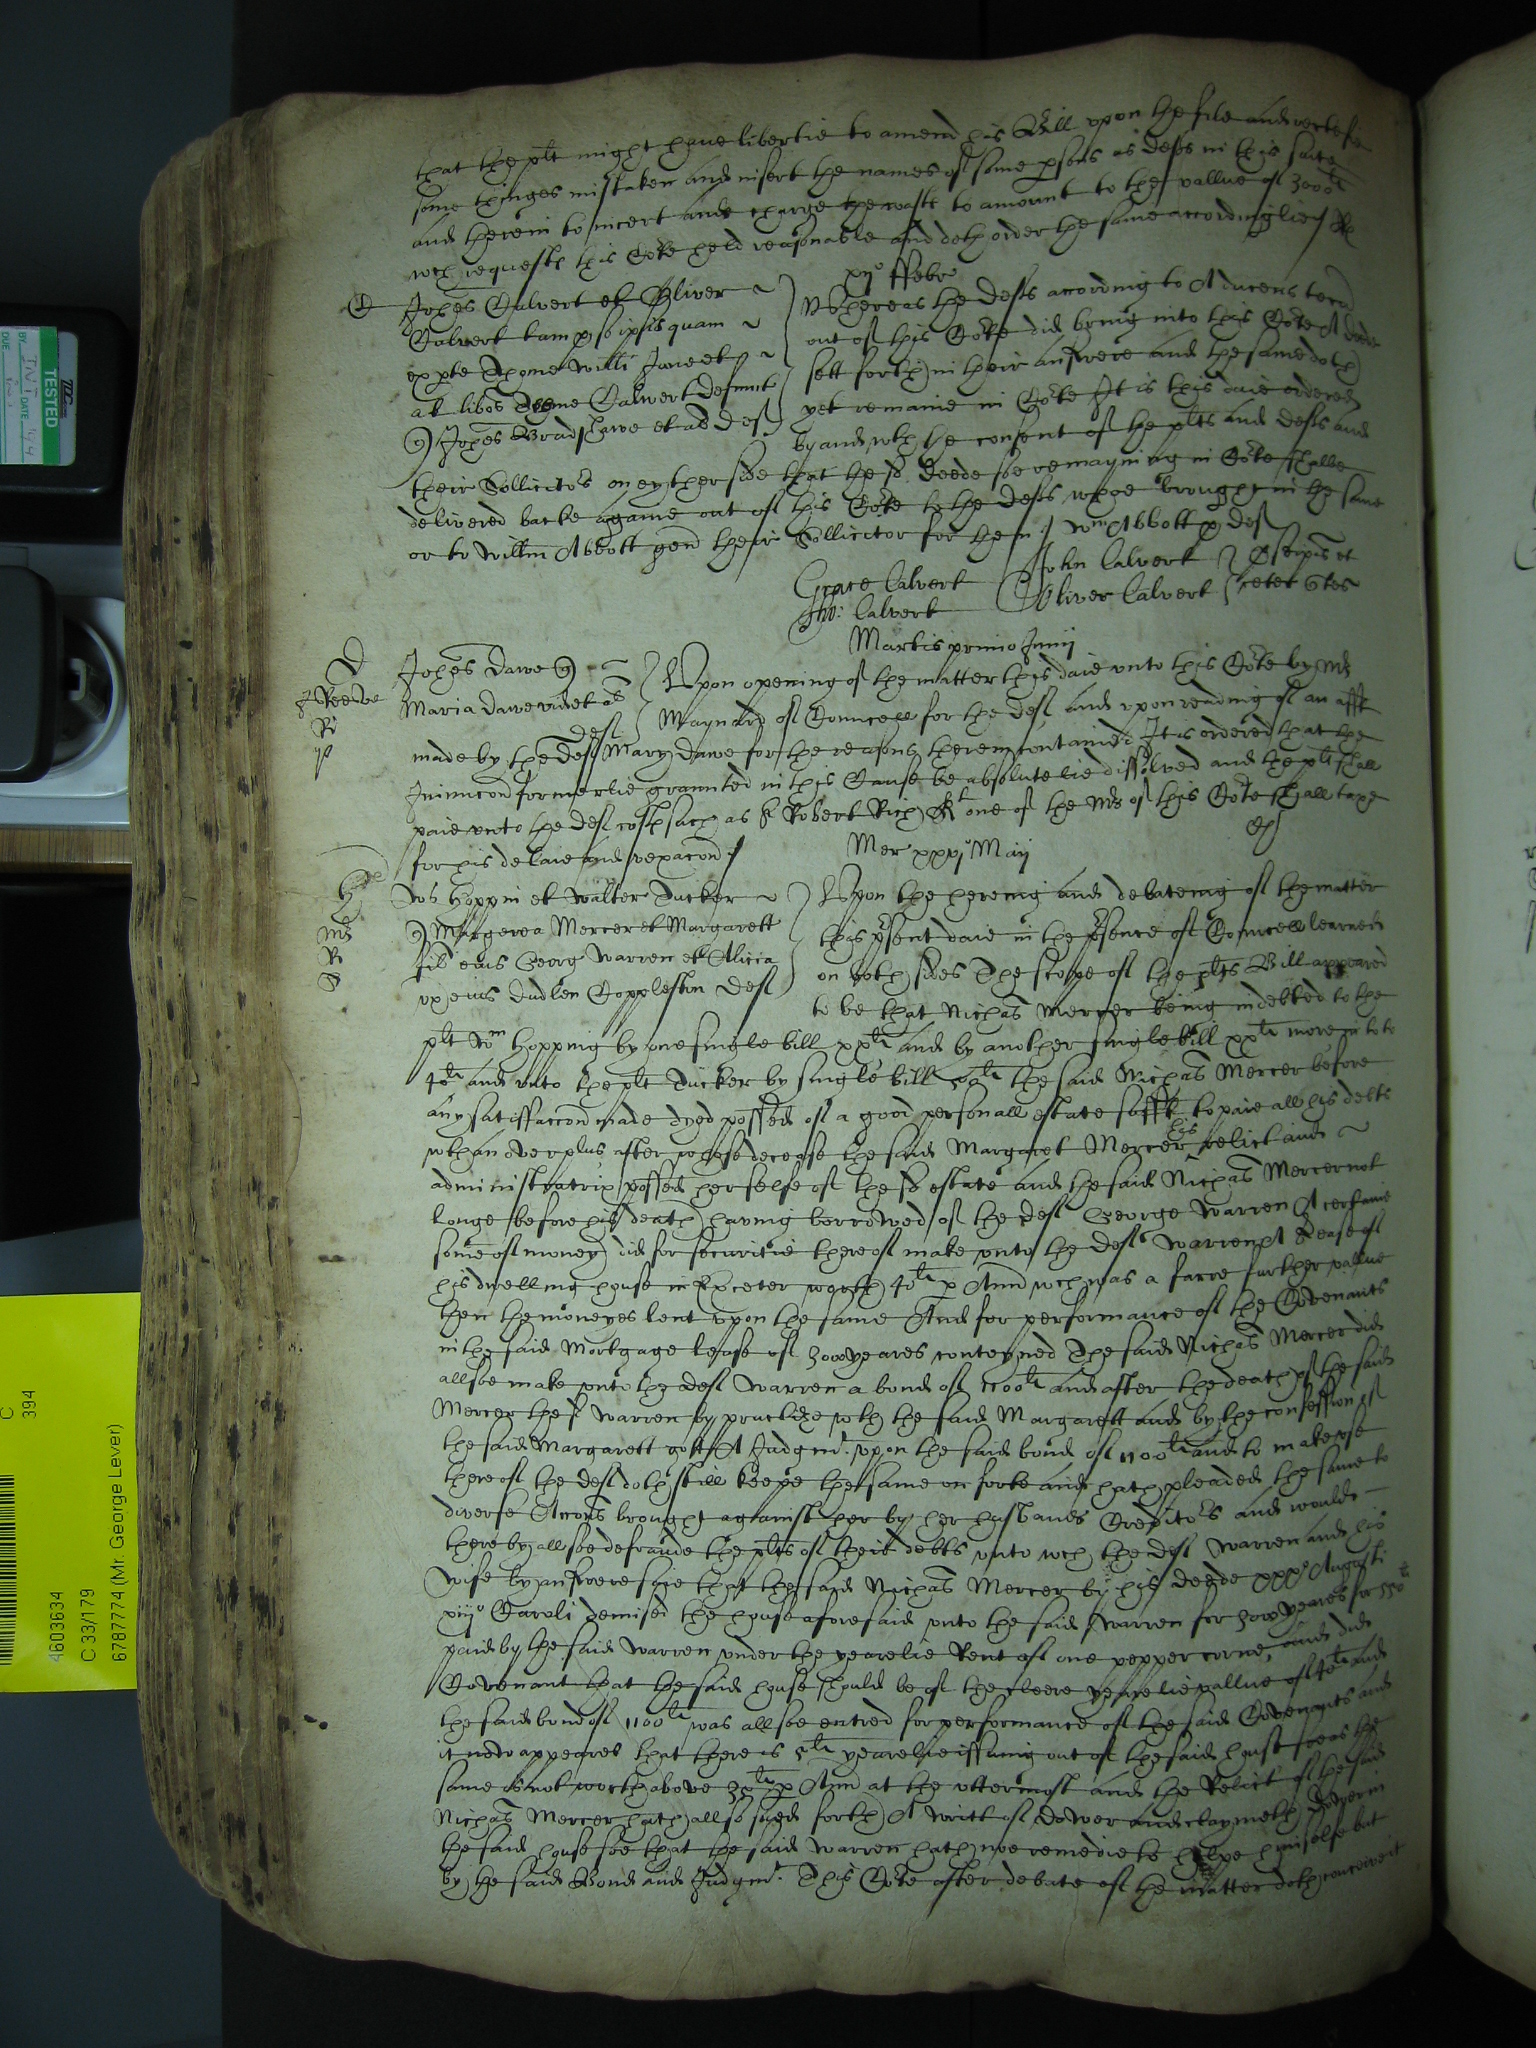 that the plt might have libertie to amend his Bill upon the file and rectefie
some thinges mistaken and insert the names of some psons as defts in this suite
and therein to incert and charge the waste to amount to the vallue of 3000li
wch requests this Cote held reasonable and doth order the same accordinglie
xijo ffebr
C
Johes Calvert et Oliver
Calvert tam p se ipis quam
ex pte Thome Willi Jane et
al libos Thome Calvert defunct
Johes Bradshawe et al def
Whereas the defts according to A ducens tecu
out of this Cote did bring into this Cote A deede
sett forth in their answere and the same doth
yet remaine in Cote It is this daie ordered
by and wth the consent of the plts and defts and
their Sollicitors on eyther side that the sd deede soe remayning in Cote shalbe
delivered backe againe out of this Cote to the defts whoe brought in the same
or to Willm Abbott gent their Sollicitor for them wm Abbott p def
Grace Calvert John Calvert
Tho: Calvert Oliver Calvert
Martis primo Junij
D
R
Johes Dawe
Maria Dawe vid et al
def
Upon opening of the matter this daie unto this Cote by Mr
Maynard of Councell for the def and upon reading of an afft
made by the deft Mary Dawe for the reasons therein contained It is ordered that the
Iniuncon formerlie graunted in this Cause be absolutelie dissolved and the plt shall
paie unto the def costs such as Sr Robert Rich Kt one of the Mrs of this Cote shall taxe
for his delaie and vexacon
Mer xxvjo Maij
H
Mr
R
Wm Hoppin et Walter Tucker
Margerea Mercer et Margarett
fil eius Georg Warren et Alicia
ux eius Dudlen Copplestin def
Upon the hereing and debateing of the matter
this psent daie in the psence of Councell learned
on both sides The scope of the plts Bill appeared
to be that Nichas Mercer being indebted to the
plt Wm Hopping by one single bill xxli and by another single bill xxli more in toto
40li and unto the plt Tucker by single bill 50li the said Nichas Mercer before
any satisfaccon made dyed possed of a good personall estate sufft to paie all his debts
wth an overplus after whose decease the said Margaret Mercer his relict and
administratrix possed herselfe of the sd estate and the said Nichas Mercer not
longe before his death having borrowed of the def George Warren A certaine
some of money did for securitie thereof make unto the deft Warren A Lease of
his dwelling house in Exceter worth 40li p Ann wch was a farre further vallue
then the moneyes lent upon the same And for performance of the Covenants
in the said Mortgage lease of 3000 yeares conteyned The said Nichas Mercer did
allsoe make unto the def Warren a bond of 1100li and after the death of the said
Mercer the sd Warren by practize wth the said Margarett and by the confession of
the said Margarett gott A Judgmt upon the said bond of 1100li and to make use
thereof the def doth still keepe the same on foote and hath pleaded the same to
diverse Accons brought against her by her husbands Creditors and would
thereby allsoe defraude the plts of their debts unto wch the def Warren and his
wife by answere saie that the said Nichas Mercer by his deede xxxo Augusti
xiijo Caroli demised the house aforesaid unto the said Warren for 3000 yeares for 550li
paid by the said Warren under the yearelie Rent of one pepper corne and did
Covenant that the said house should be of the cleere yearelie vallue of 40li and
the said bond of 1100li was allsoe entred for performance of the said Covenants and
it now appeares that there is 5li yearelie issuing out of the said house soe as the
same is not worth above 35li p Ann at the uttermost and the Relict of the said
Nichas Mercer hath allso sued forth A writt of Dower and claymeth Dower in
the said house soe that the said Warren hath noe remedie to helpe himselfe but
by the said Bond and Judgmt. This Cote after debate of the matter doth conceive it
TESTED
BY
DATE
DUE
C
394
4603634
C 33/179
6787774 (Mr. George Lever)